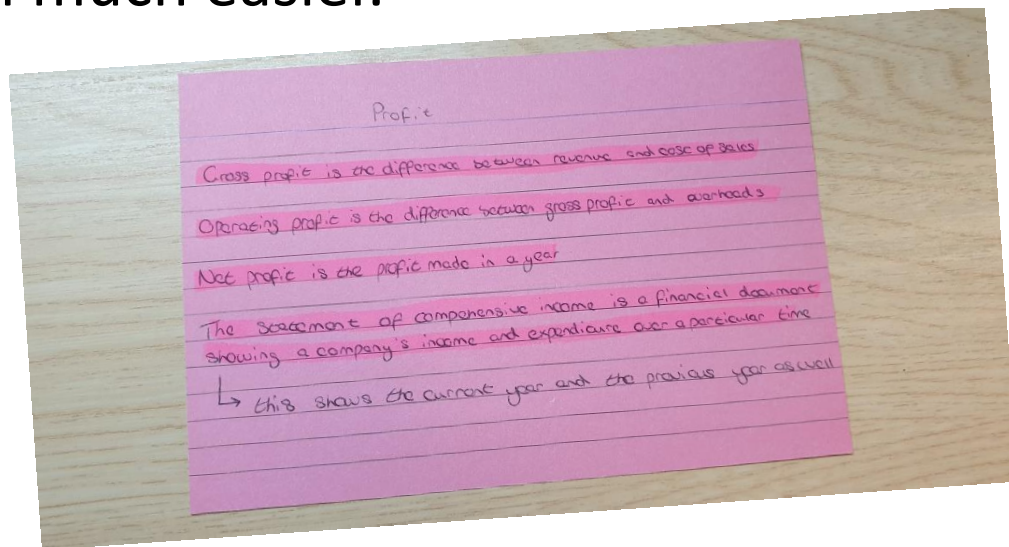 much easier.
Profit
Gross profit is the difference between revenue and cost of sales
Operating profit is the difference between gross profit and overheads
Net profit is the profit made in a year
The statement of compohensive income is a financial document
showing a company's income and expendicure over a particular time
↳ this shows the current year and the previous year as well